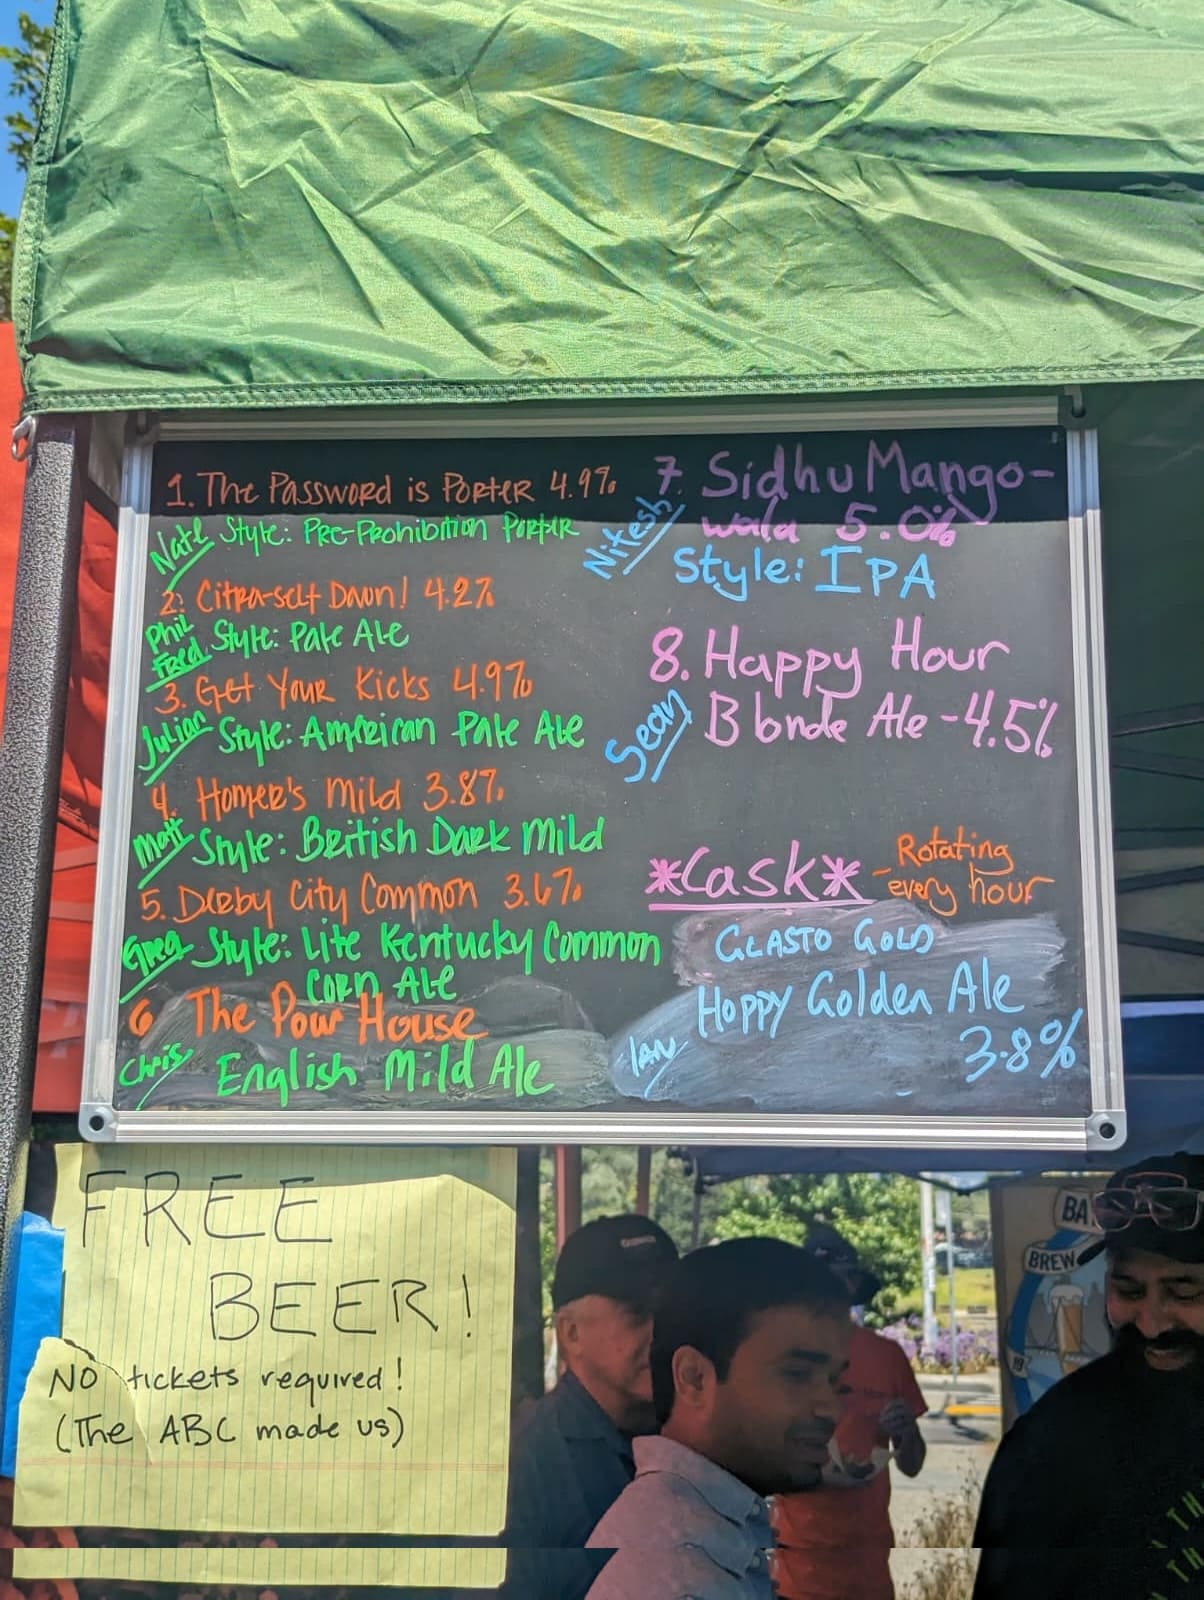 1. The Password is Porter 4.9%
Nate Style: Pre-Prohibition Porter
2. Citra-self Down! 4.2%
Phil
Fred Style: Pale Ale
3. Get Your Kicks 4.9%
Julian Style: American Pale Ale
4. Homer's Mild 3.8%
Matt Style: British Dark Mild
5. Derby City Common 3.6%
Greg Style: Lite Kentucky Common
Corn Ale
6 The Pour House
Chris English Mild Ale
7. Sidhu Mango-
wala 5.0%
Nitesh Style: IPA
8. Happy Hour
Sean Blonde Ale - 4.5%
*Cask* - Rotating
every hour
Glasto Gold
Hoppy Golden Ale
Ian 3.8%
FREE
BEER!
NO tickets required!
(The ABC made us)
BA
BREW